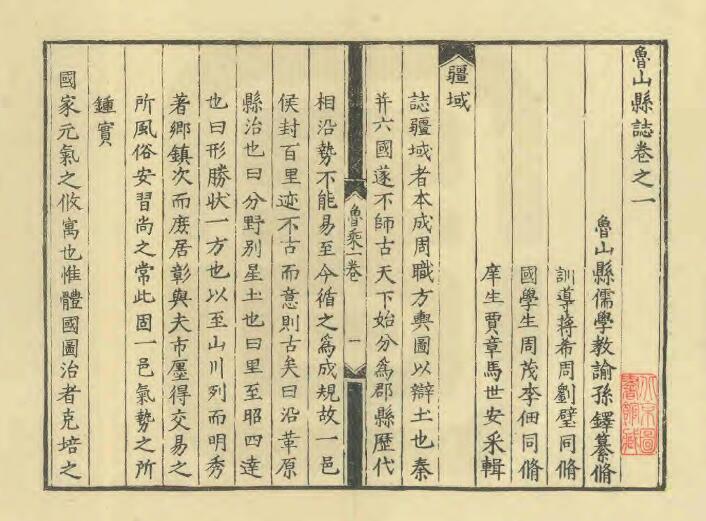 魯山縣誌卷之一
魯山縣儒學教諭孫鐸纂脩
訓導蔣希周劉璧同脩
國學生周茂李佃同脩
庠生賈章馬世安采輯
疆域
誌疆域者本成周職方輿圖以辯土也秦
并六國遂不師古天下始分爲郡縣歷代
魯乘一卷
一
相沿勢不能易至今循之爲成規故一邑
侯封百里迹不古而意則古矣曰沿革原
縣治也曰分野别星土也曰里至昭四達
也曰形勝狀一方也以至山川列而明秀
著鄉鎮次而庶居彰與夫市廛得交易之
所風俗安習尚之常此固一邑氣勢之所
鍾實
國家元氣之攸寓也惟體國圖治者克培之